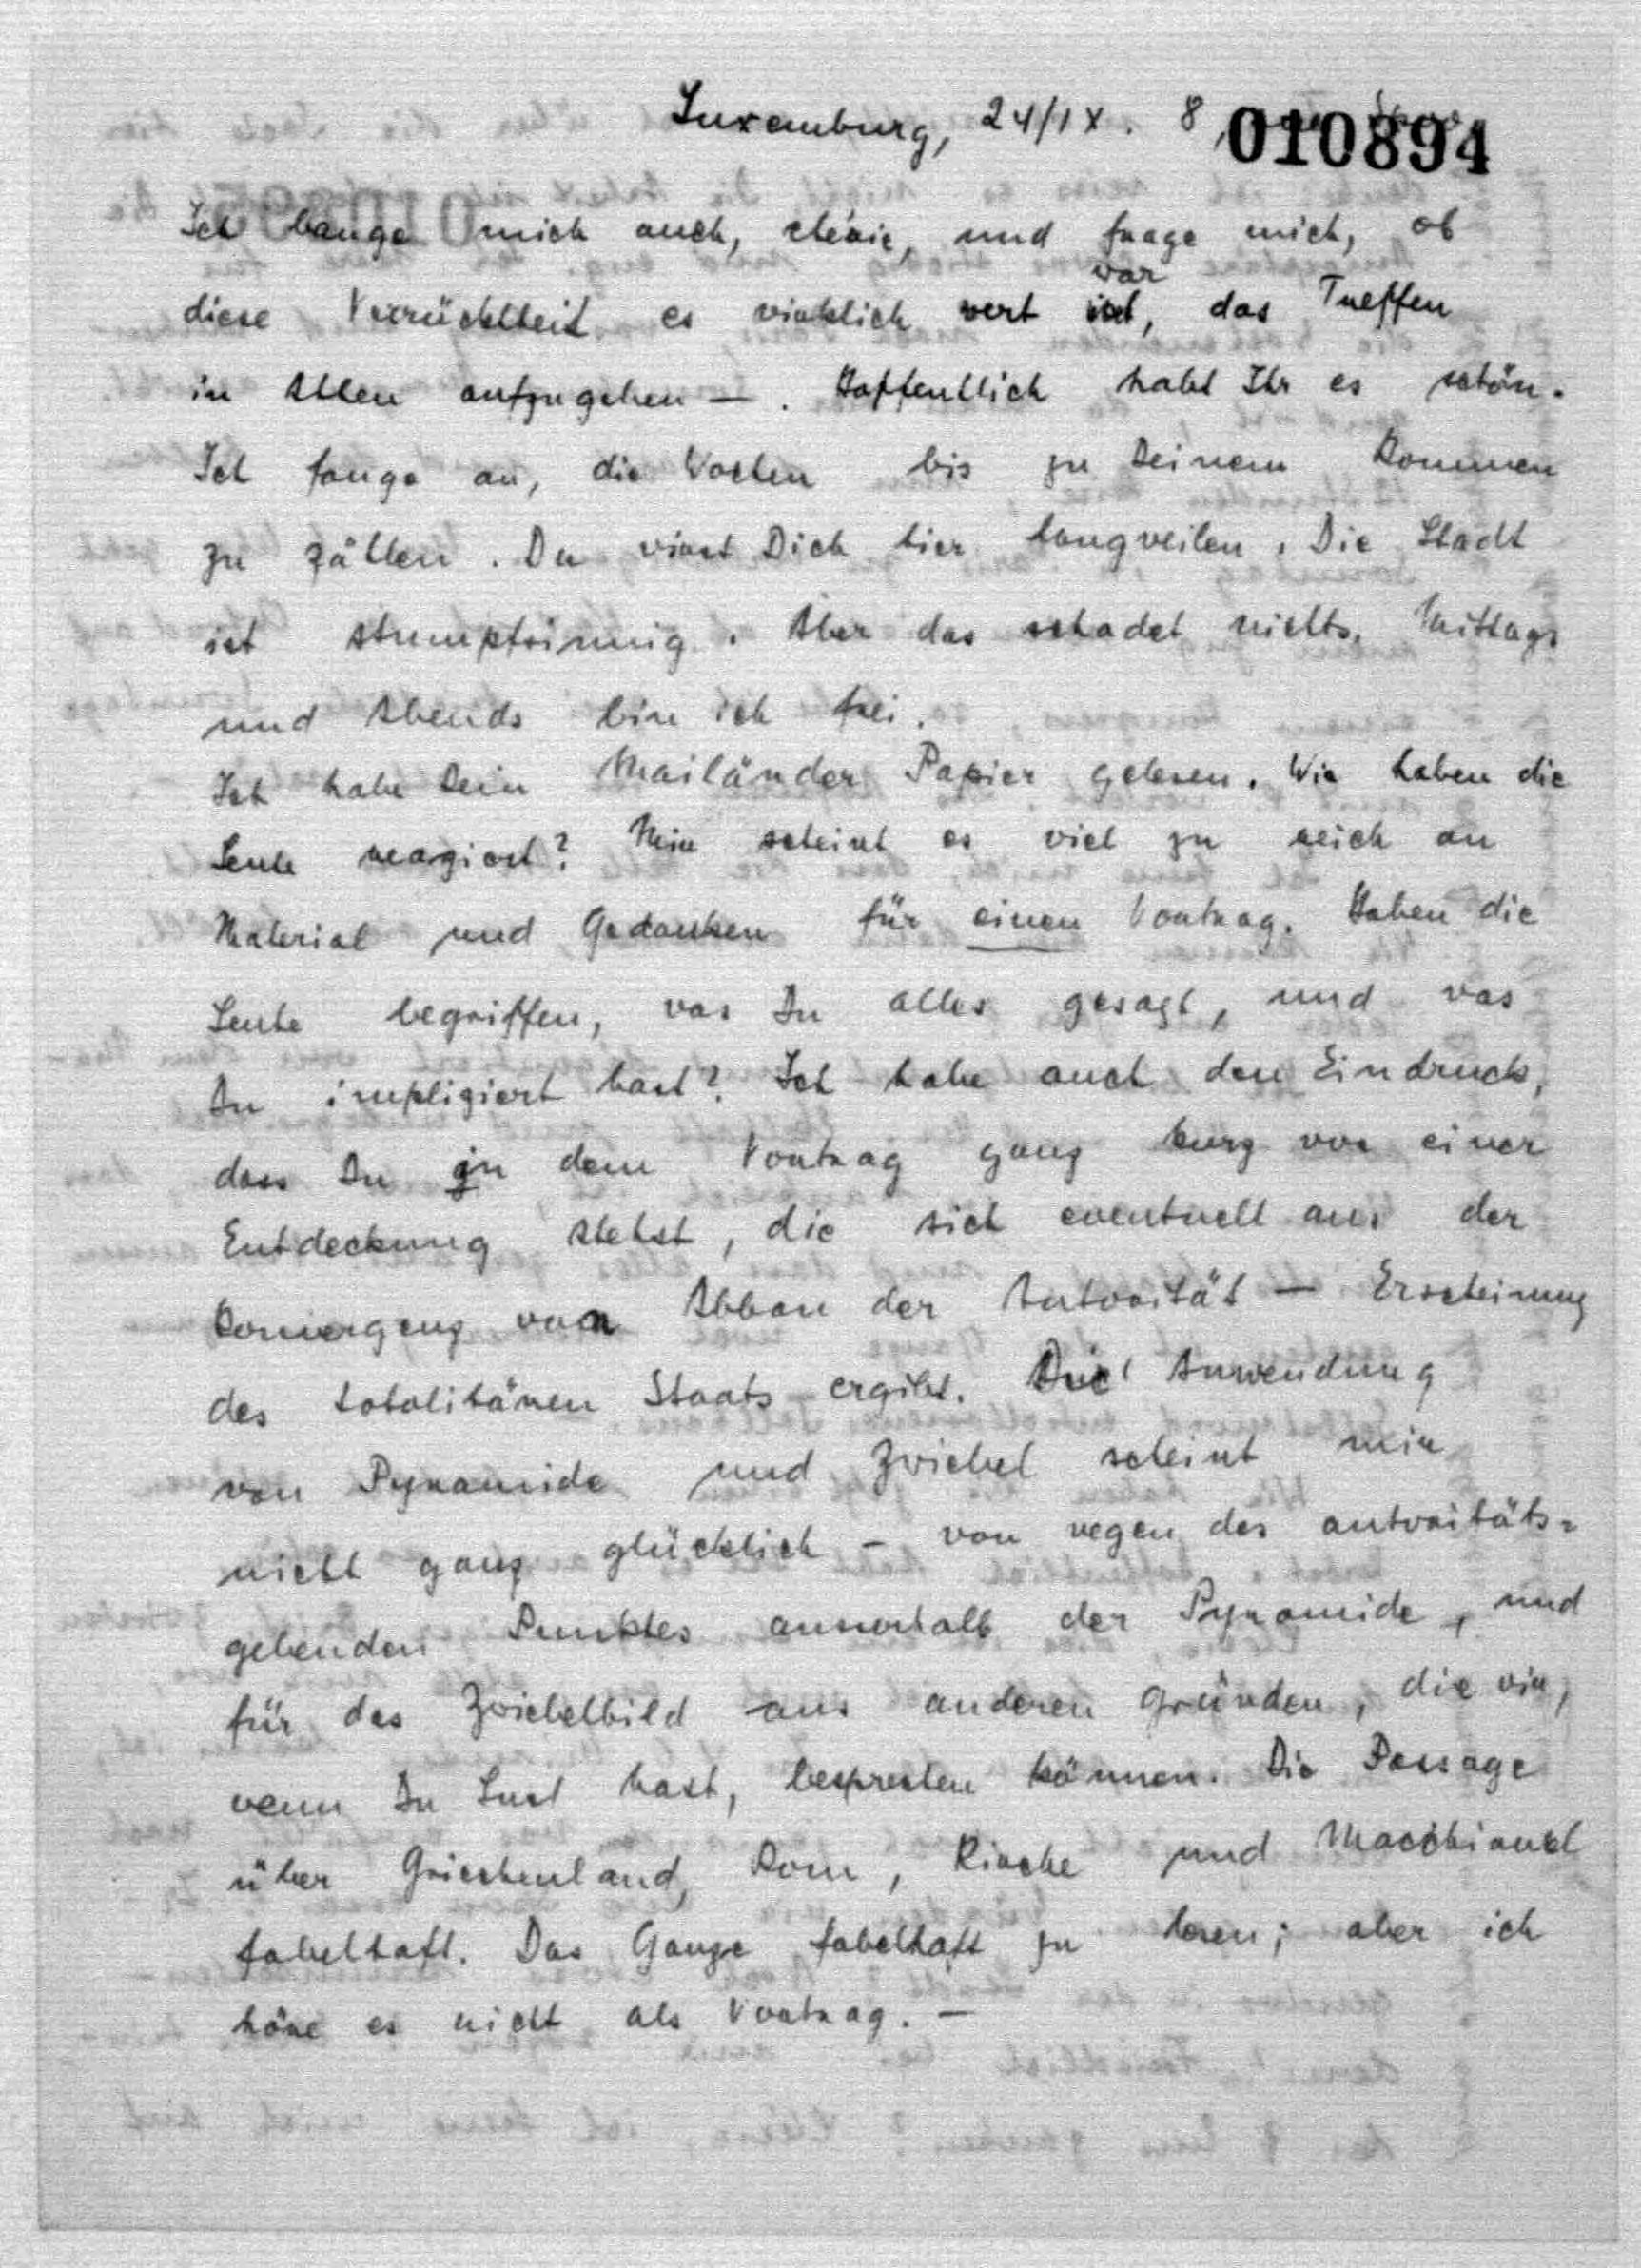 Luxemburg, 24/IX. 8,
010894
Ich bange mich auch, chérie, und frage mich, ob
war
diese Verrücktheit es wirklich wert ist, das Treffen
in Athen aufzugeben —. Hoffentlich habt Ihr es schön.
Ich fange an, die Wochen bis zu Deinem Kommen
zu zählen. Du wirst Dich hier langweilen. Die Stadt
ist stumpfsinnig. Aber das schadet nichts. Mittags
und Abends bin ich frei.
Ich habe Dein Mailänder Papier gelesen. Wie haben die
Leute reagiert? Mir scheint es viel zu reich an
Material und Gedanken für einen Vortrag. Haben die
Leute begriffen, was Du alles gesagt, und was
Du impliziert hast? Ich habe auch den Eindruck,
dass Du in dem Vortrag ganz kurz vor einer
Entdeckung stehst, die sich eventuell aus der
Konvergenz von Abbau der Autorität — Erscheinung
des totalitären Staats ergibt. Die Anwendung
von Pyramide und Zwiebel scheint mir
nicht ganz glücklich – von wegen des autoritäts=
gebenden Punktes ausserhalb der Pyramide, und
für das Zwiebelbild aus anderen Gründen, die wir,
wenn Du Lust hast, besprechen können. Die Passage
über Griechenland, Rom, Kirche und Macchiavel
fabelhaft. Das Ganze fabelhaft zu lesen; aber ich
höre es nicht als Vortrag. —